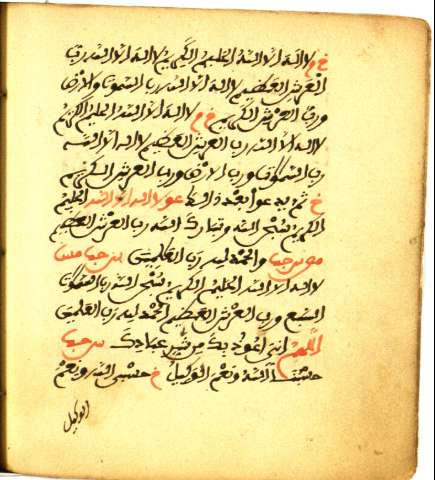 خ م لا اله الا الله العليم الكريم لا اله الا الله رب
العرش العظيم لا اله الا الله رب السموت والارض
ورب العرش الكريم خ م لا اله الا الله الحليم الكريم
لا اله الا الله رب العرش العظيم لا اله الا الله
رب السموت ورب الارض ورب العرش الكريم
خ ثم يدعوا بعد ذلك عو لا اله الا الله الحليم
الكريم سبحن الله وتبارك الله رب العرش العظيم
والحمد لله رب العلمين
لا اله الا الله الحليم الكريم سبحن الله رب السموت
السبع ورب العرش العظيم الحمد لله رب العلمين
اللهم اني اعوذ بك من شر عبادك
حسبنا الله ونعم الوكيل خ حسبي الله ونعم
الوكيل